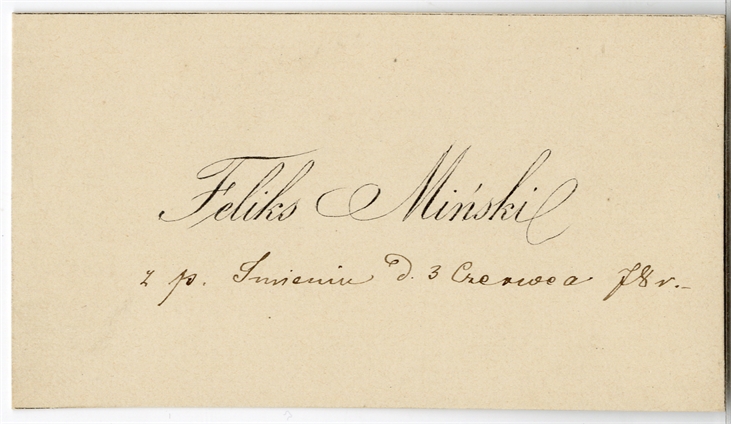 Feliks Miński
z p. Imieniu D. 3 Czerwca 78 r.